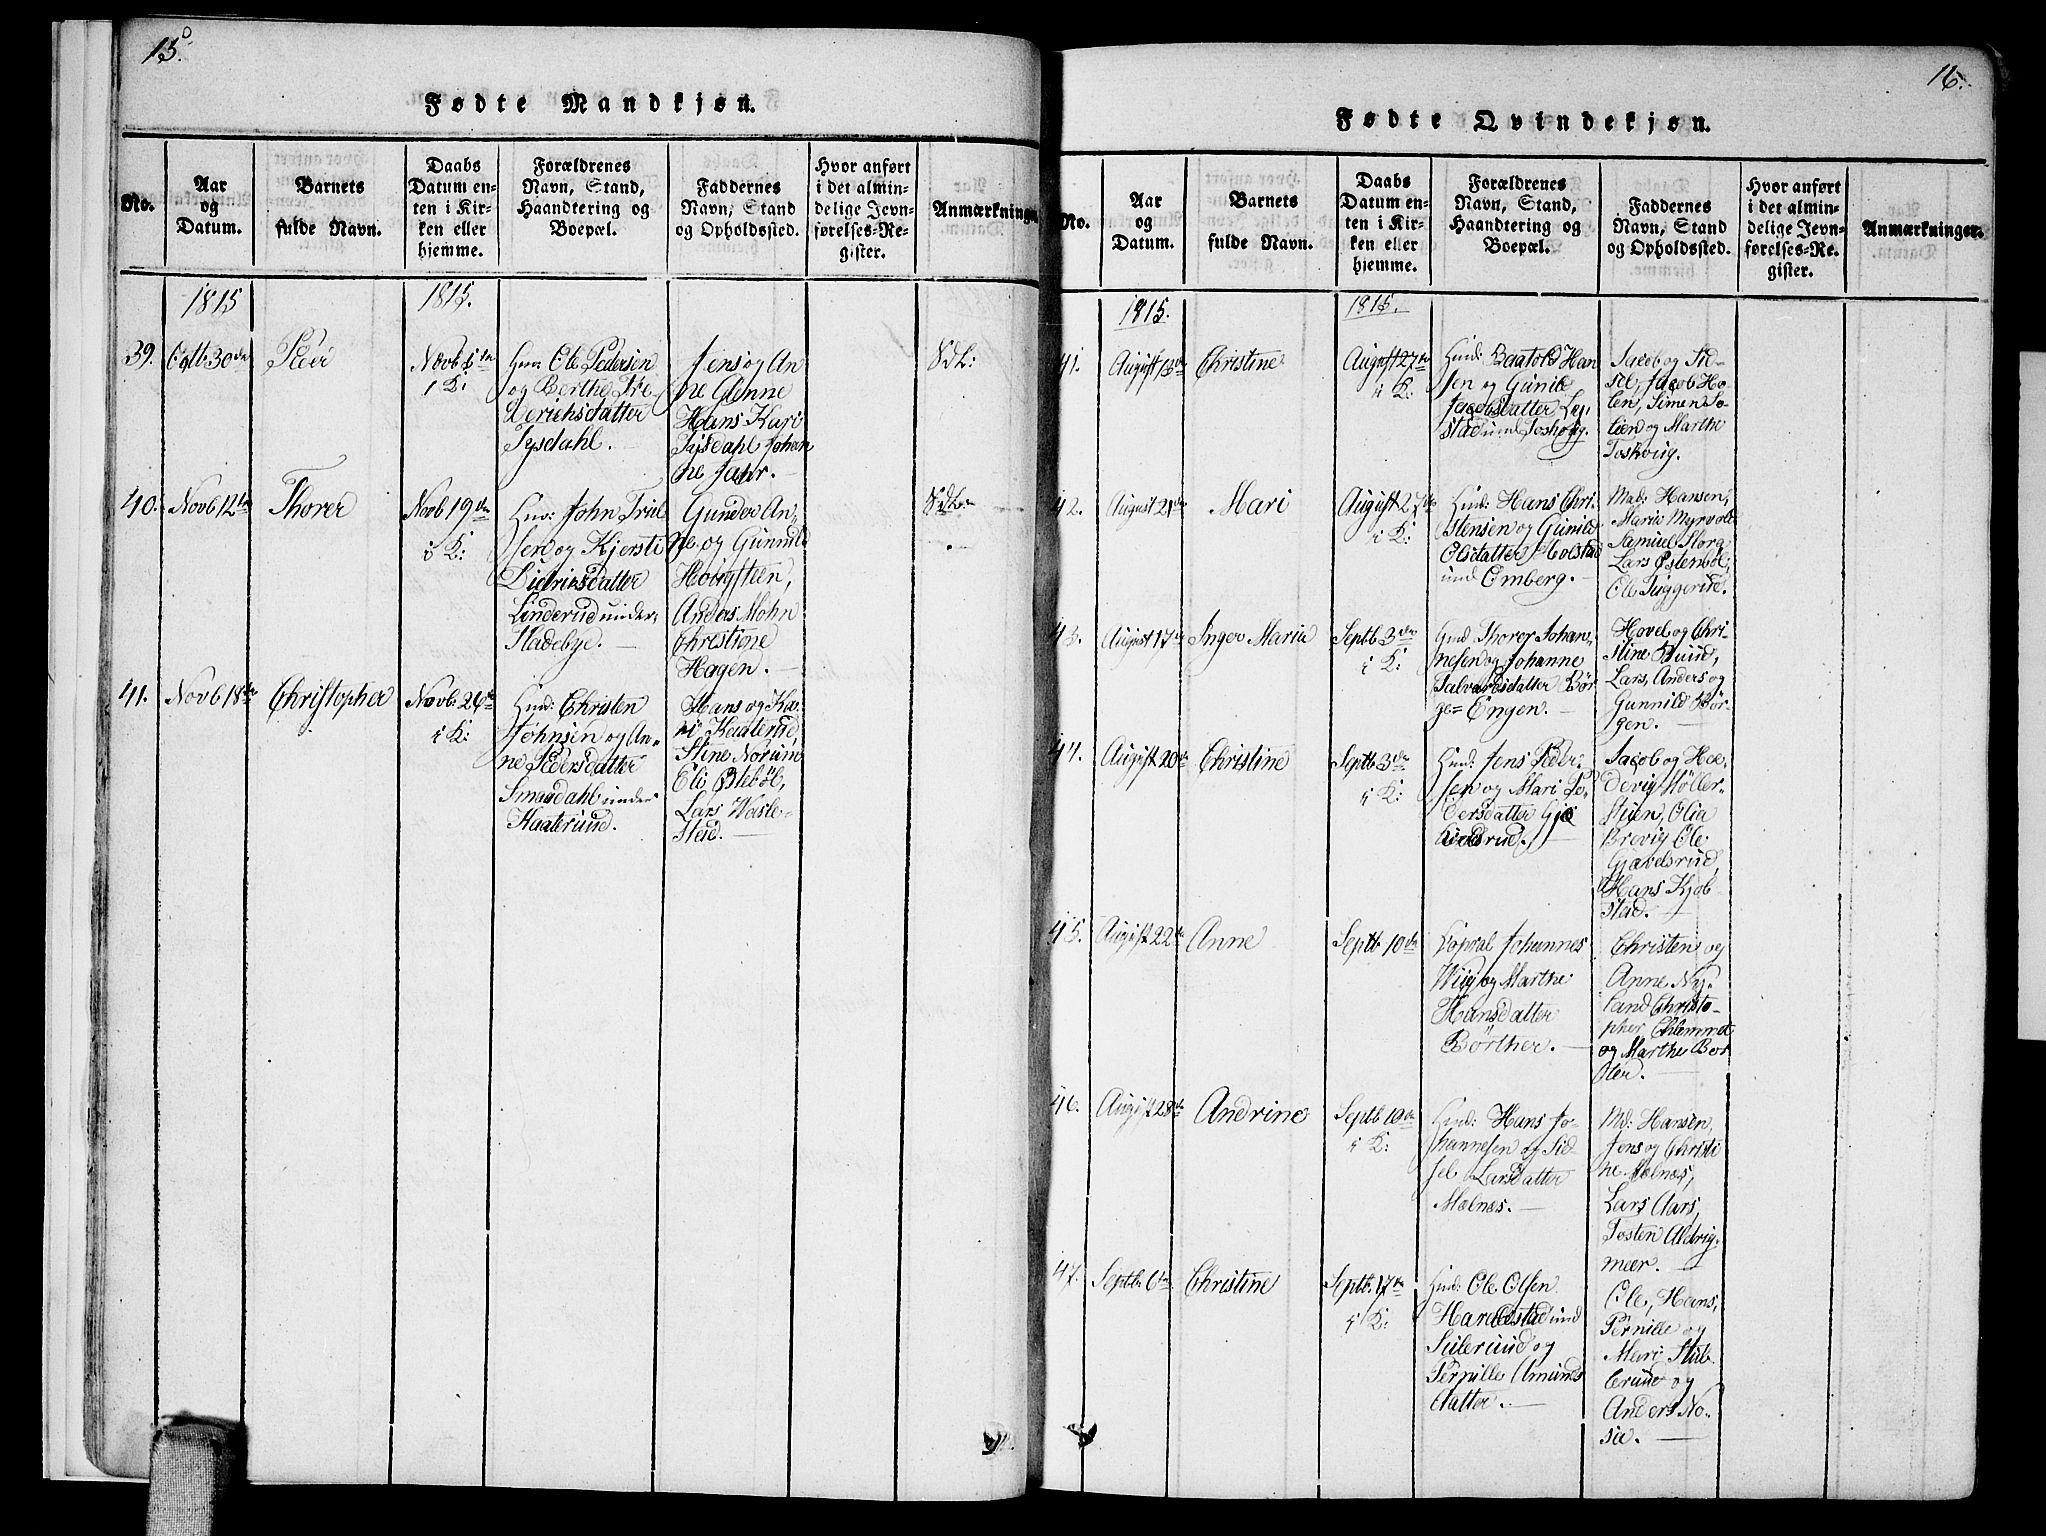 15.
Fødte Mandkjøn.
No.
Aar
og
Datum.
Barnets
fulde Navn.
Daabs
Datum en-
ten i Kir-
ken eller
hjemme.
Forældrenes
Navn, Stand,
Haandtering og
Boepæl.
Faddernes
Navn, Stand
og Opholdssted.
Hvor anført
i det almin-
delige Jevn-
førelses-Re-
gister.
Anmærkninger
1815
1815.
39.
Octb: 30
Peer
Novb 5te
i K:
Ole Pedersen
og Berthe Fre-
derichsdatter
Fysdahl.
Jens og An
ne Glenne
Hans Kari
Fysdahl Johan
ne Fahr.
40.
Novb 12te
Thorer
Novb 19de
i K:
John Truls
sen og Kjersti
Didriksdatter
Linderud under
Stadebye.
Gunder An-
ne og Gunnild
Hoigsteen,
Anders Mohn
Christine
Hagen.
41.
Novb 18de
Christopher
Novb: 26de
i K:
Hmd: Christen
Johnsen og An-
ne Pedersdatter
Smedahl under
Haaterud.
Hans og Ka-
ri Kaaterud,
Stine Norum
Eli Østebøl,
Lars Weste-
stad.
16.
Fødte Qvindekjøn.
No.
Aar
og
Datum.
Barnets
fulde Navn.
Daabs
Datum en-
ten i Kir-
ken eller
hjemme.
Forældrenes
Navn, Stand,
Haandtering og
Boepæl.
Faddernes
Navn, Stand
og Opholdssted.
Hvor anført
i det almin-
delige Jevn-
førelses-Re-
gister.
Anmærkninger.
1815.
1815.
41.
August 13de
Christine
August 27de
i K:
Hmd: Baatold Han
sen og Gunild
Jacobsdatter
stad und Toshvig.
Jacob og Sid-
sel, Jacob Ho-
len, Simen So-
lien og Marthe
Toshvig.
42.
August 21de
Mari
August 27de
i K:
Hmd: Hans Chri-
stensen og Gunild
Olsdatter Holstad
und Omberg.
Mad: Hansen,
Marie Myrvold
Samuel Horg
Lars Østenbøl,
Ole Tuggerud.
43.
August 17de
Inger Maria
Septb 3de
i K:
Hmd Thorer Johan-
nesen og Johanne
Salvardsdatter Bør
ge= Engen.
Hovel og Chri-
stine Ruud,
Lars, Anders og
Gunnild Bør-
gen.
44.
August 20de
Christine
Septb 3de
i K:
Hmd: Jens Peder-
sen og Mari Pe-
dersdatter Gjæ
Jacob og He-
devig Møller-
stuen, Olia
Brevig Ole
Gjævelsrud,
Hans Kjøb
stad.
45.
August 22de
Anne
Septb 10de
Coporal Johannes
Wiig og Marthe
Hansdatter
Børther.
Christen og
Anne Ny-
land Christo-
pher Klemmet
og Marthe Bør
ter.
46.
August 28de
Andrine
Septb 10de
i K:
Hmd: Hans Jo-
hannesen og Sid
sel Larsdatter
Melnes.
Md: Hansen,
Jens og Christi
ne Melnes,
Lars Aars,
Tosten Aldrig-
meer.
47.
Septb: 6te
Christine
Septb: 17de
i K:
Hmd: Ole Olsen
Harestad und
Sulerud og
Pernille Amunds
datter.
Ole, Hans,
Pernille og
Mari Stub-
berud og
Anders No-
sa.